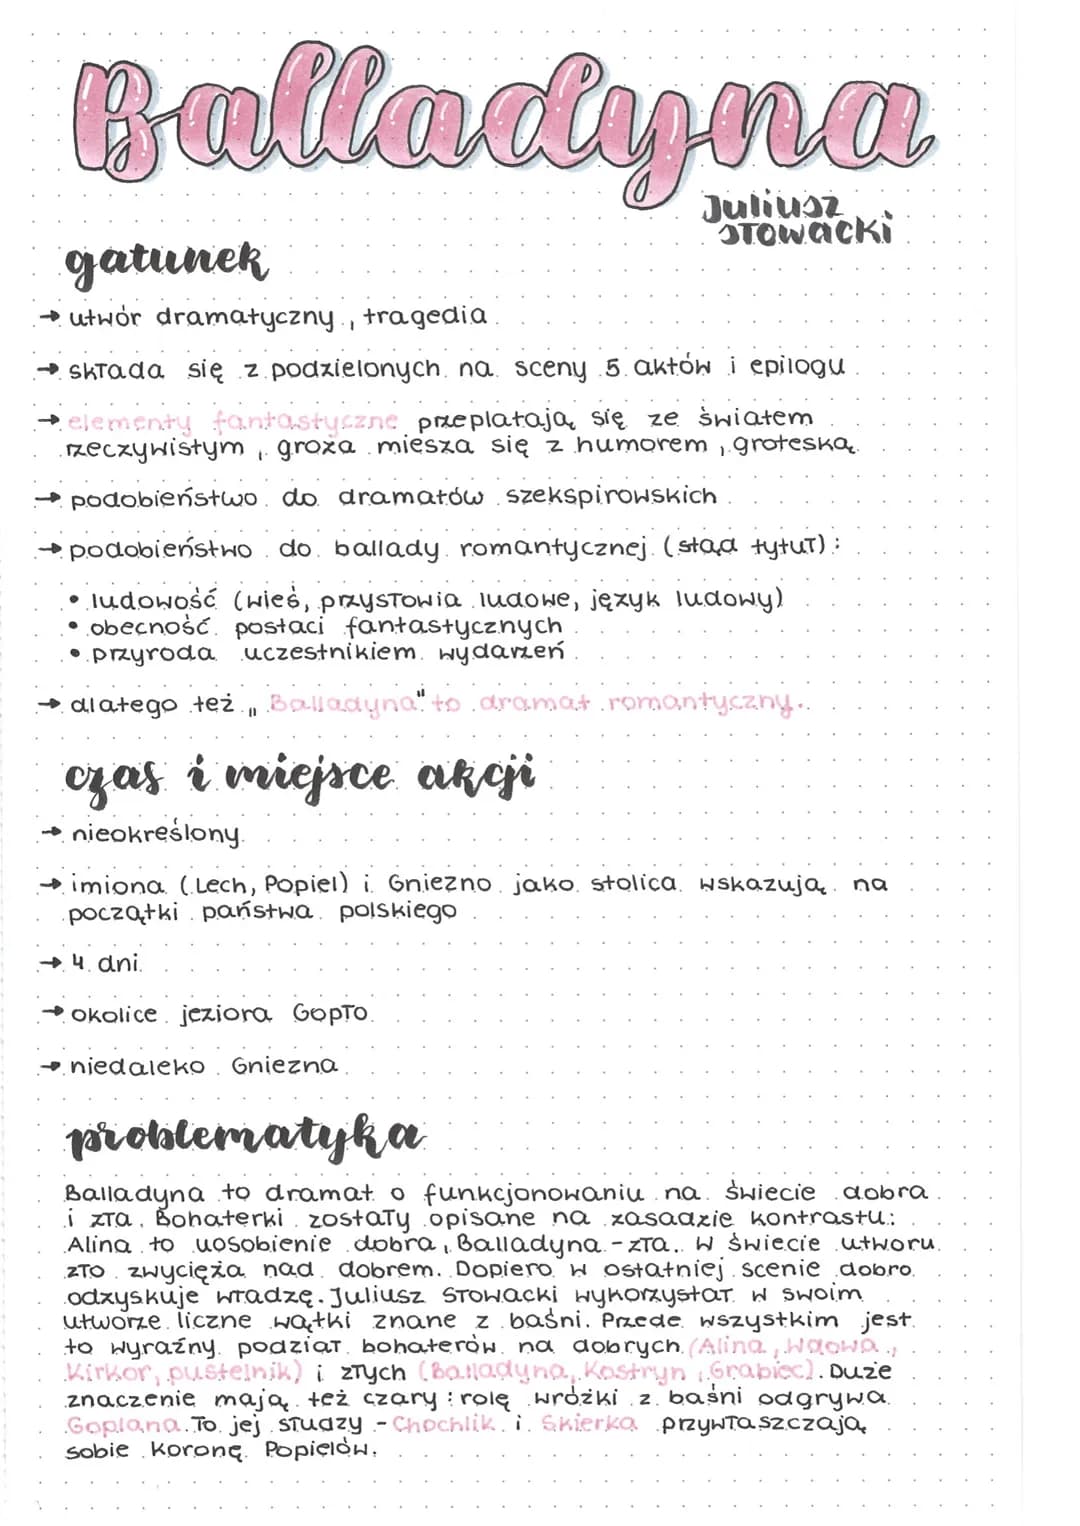 Balladyna
Juliusz
Słowacki
gatunek
→ utwór dramatyczny, tragedia
→ składa się z podzielonych na sceny 5 aktów i epilogu
→ elementy fantastyczne przeplatają się ze światem
rzeczywistym, groza miesza się z humorem, groteską
→ podobieństwo do dramatów szekspirowskich
→ podobieństwo do ballady romantycznej (stąd tytuł):
• ludowość (wieś, przysłowia ludowe, język ludowy)
• obecność postaci fantastycznych
• przyroda uczestnikiem wydarzeń
→ dlatego też „Balladyna" to dramat romantyczny.
czas i miejsce akcji
→ nieokreślony
→ imiona (Lech, Popiel) i Gniezno jako stolica wskazują na
początki państwa polskiego
→ 4 dni
→ okolice jeziora Gopło
→ niedaleko Gniezna
problematyka
Balladyna to dramat o funkcjonowaniu na świecie dobra
i zła. Bohaterki zostały opisane na zasadzie kontrastu:
Alina to uosobienie dobra, Balladyna - zła. W świecie utworu
zło zwycięża nad dobrem. Dopiero w ostatniej scenie dobro
odzyskuje władzę. Juliusz Słowacki wykorzystał w swoim
utworze liczne wątki znane z baśni. Przede wszystkim jest
to wyraźny podział bohaterów na dobrych (Alina, Wdowa,
Kirkor, pustelnik) i złych (Balladyna, Kostryn, Grabiec). Duże
znaczenie mają też czary: rolę wróżki z baśni odgrywa
Goplana. To jej słudzy - Chochlik i Skierka przywłaszczają
sobie koronę Popielów.